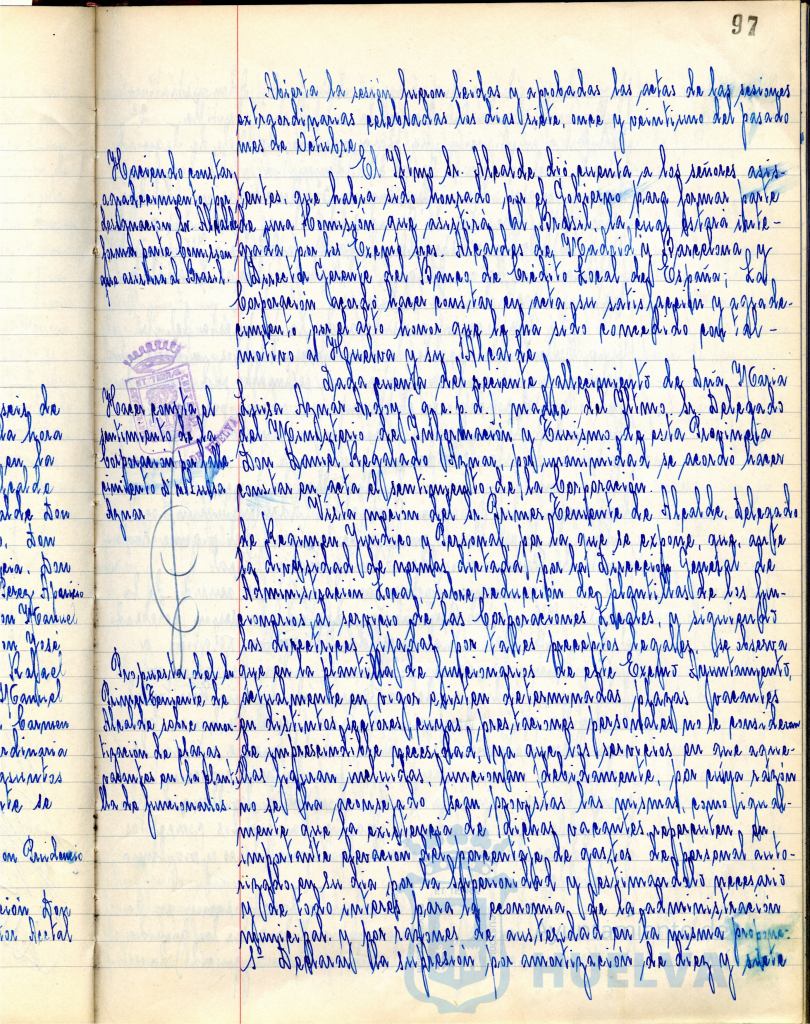 97
Abierta la sesión fueron leidas y aprobadas las actas de las sesiones
extraordinarias celebradas los dias siete, once y veintiuno del pasado
mes de Octubre.
Haciendo constar
agradecimiento por
designación Sr. Alcalde
formar parte Comision
que asistirá al Brasil.
El Iltmo Sr. Alcalde, dió cuenta a los señores asis-
tentes, que habia sido honrado por el Gobierno para formar parte
de una Comisión que asistirá al Brasil, la cual estará inte-
grada por los Excmo Sres. Alcaldes de Madrid y Barcelona y
Director Gerente del Banco de Credito Local de España; La
Corporación acordó hacer constar en acta su satisfacción y agrade-
cimiento por el alto honor que le ha sido concedido con tal
motivo a Huelva y su Alcalde.
Hacer constar el
sentimiento de la
Corporacion por falle-
cimiento
Aznar
Dada cuenta del reciente fallecimiento de Dña Maria
Luisa Aznar (q.e.p.d.), madre del Iltmo. Sr. Delegado
del Ministerio de Información y Turismo de esta Provincia
Don Daniel Regalado Aznar, por unanimidad se acordó hacer
constar en acta el sentimiento de la Corporación.
Propuesta del Sr
Primer Teniente de
Alcalde sobre amor-
tización de plazas
vacantes en la planti-
lla de funcionarios
Vista mocion del Sr. Primer Teniente de Alcalde, Delegado
de Regimen Juridico y Personal, por la que se expone, que ante
la diversidad de normas dictadas por la Direccion General de
Administracion Local, sobre reducción de plantillas de los fun-
cionarios al servicio de las Corporaciones Locales, y siguiendo
las directrices fijadas por tales preceptos legales, se observa
que en la plantilla de funcionarios de este Excmo Ayuntamiento,
actualmente en vigor existen determinadas plazas vacantes
en distintos sectores cuyas prestaciones personales no se consideran
de imprescindible necesidad, ya que los servicios en que aque-
llas figuran incluidas, funcionan debidamente, por cuya razón
no se ha aconsejado sean provistas las mismas, como igual-
mente que la existencia de dichas vacantes, repercuten en
importante elevacion del porcentaje de gastos de personal auto-
rizado en su dia por la Superioridad y estimandolo necesario
y de todo interes para la economia de la administración
municipal, y por razones de austeridad en la misma propone:
1º Declarar la supresión por amortización de diez y siete
HUELVA